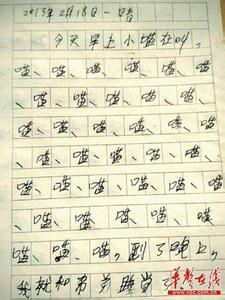 2013年2月18日 一 晴
今天早上小喵在叫,
喵、喵、喵、喵、喵、喵、
喵、喵、喵、喵、喵、喵、
喵、喵、喵、喵、喵、喵、
喵、喵、喵、喵、喵、喵、
喵、喵、喵、喵、喵、喵、
喵、喵、喵、喵、喵、
喵、喵、喵,到了晚上,
我就和弟弟睡觉了
华声在线